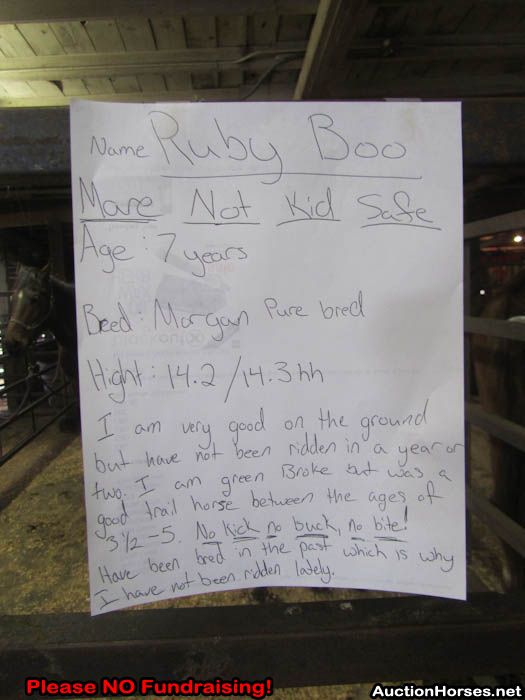 Name Ruby Boo
Mare Not Kid Safe
Age: 7 years
Breed: Morgan Pure bred
Hight: 14.2/14.3 hh
I am very good on the ground
but have not been ridden in a year or
two. I am green Broke but was a
good trail horse between the ages of
3 1/2 - 5. No kick no buck, no bite!
Have been bred in the past which is why
I have not been ridden lately.
Please NO Fundraising!
AuctionHorses.net